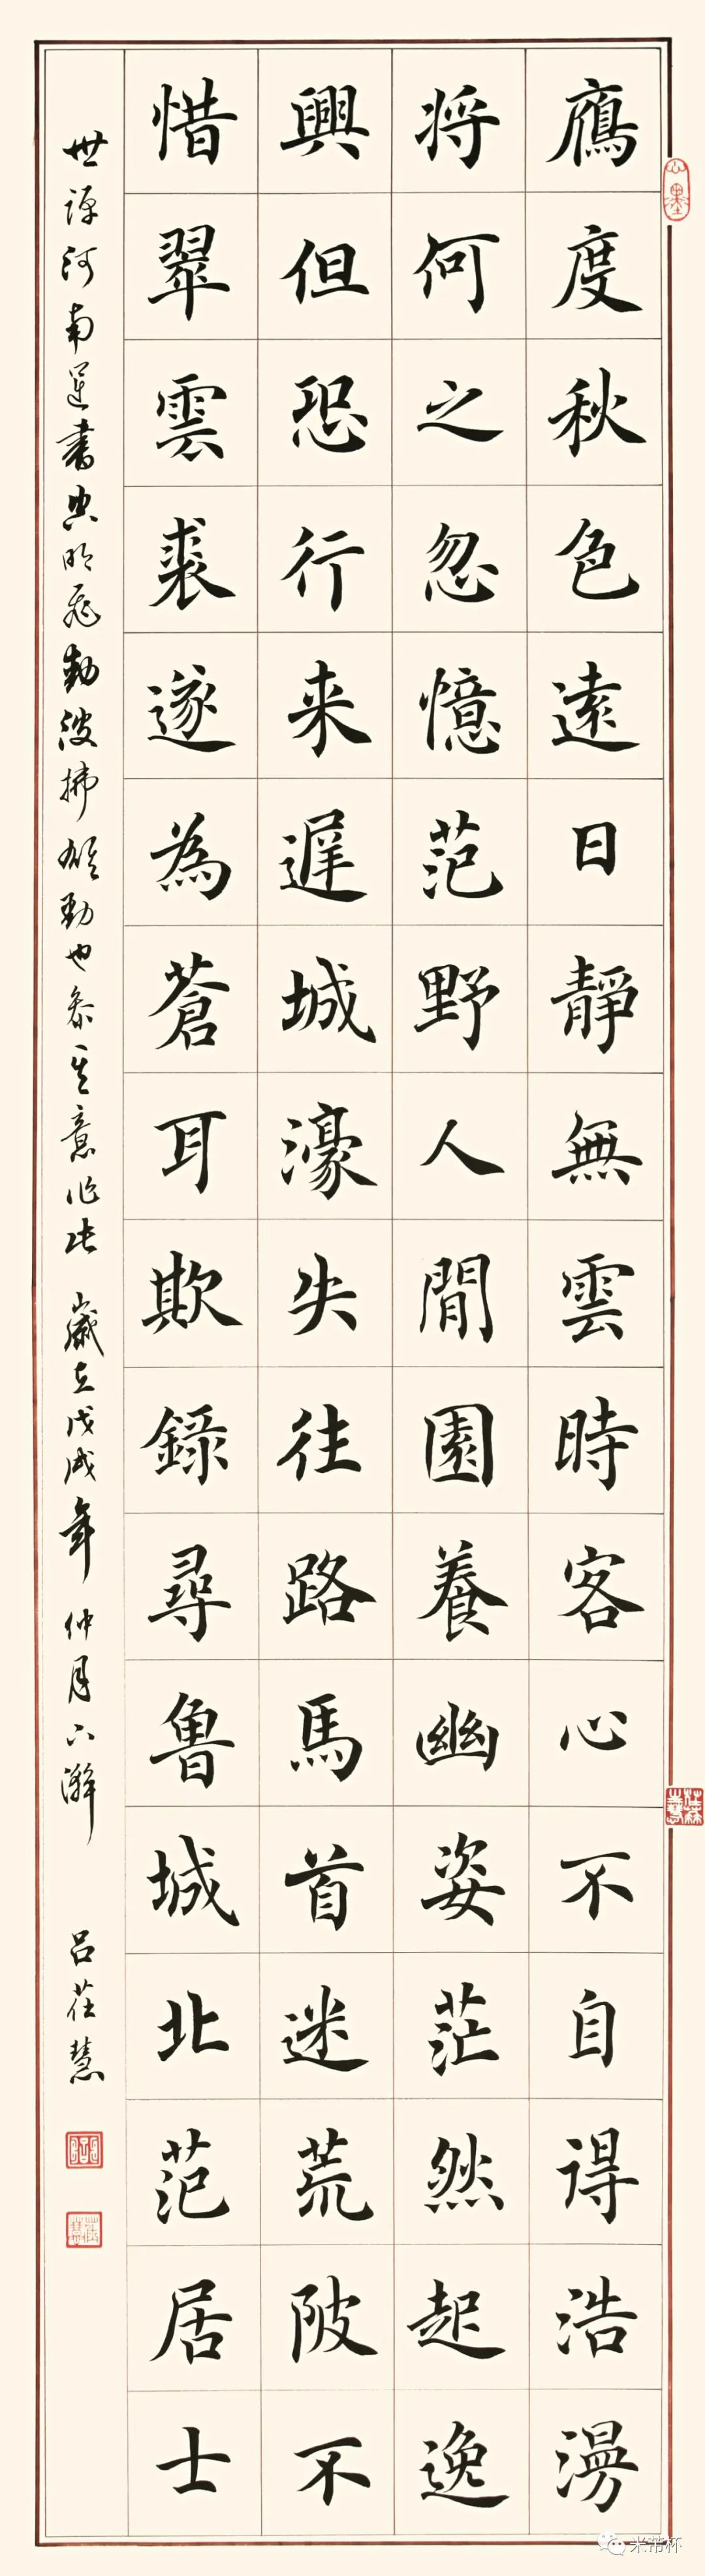 鴈度秋色遠日靜無雲時客心不自得浩漫
将何之忽憶范野人閒園養幽姿茫然起逸
興但恐行来遲城濠失往路馬首迷荒陂不
惜翠雲裘遂為蒼耳欺錄尋魯城北范居士
世謂河南運書 飛動 勁也參其意作此 歲在戊戌年 仲月 呂荏慧
米芾杯